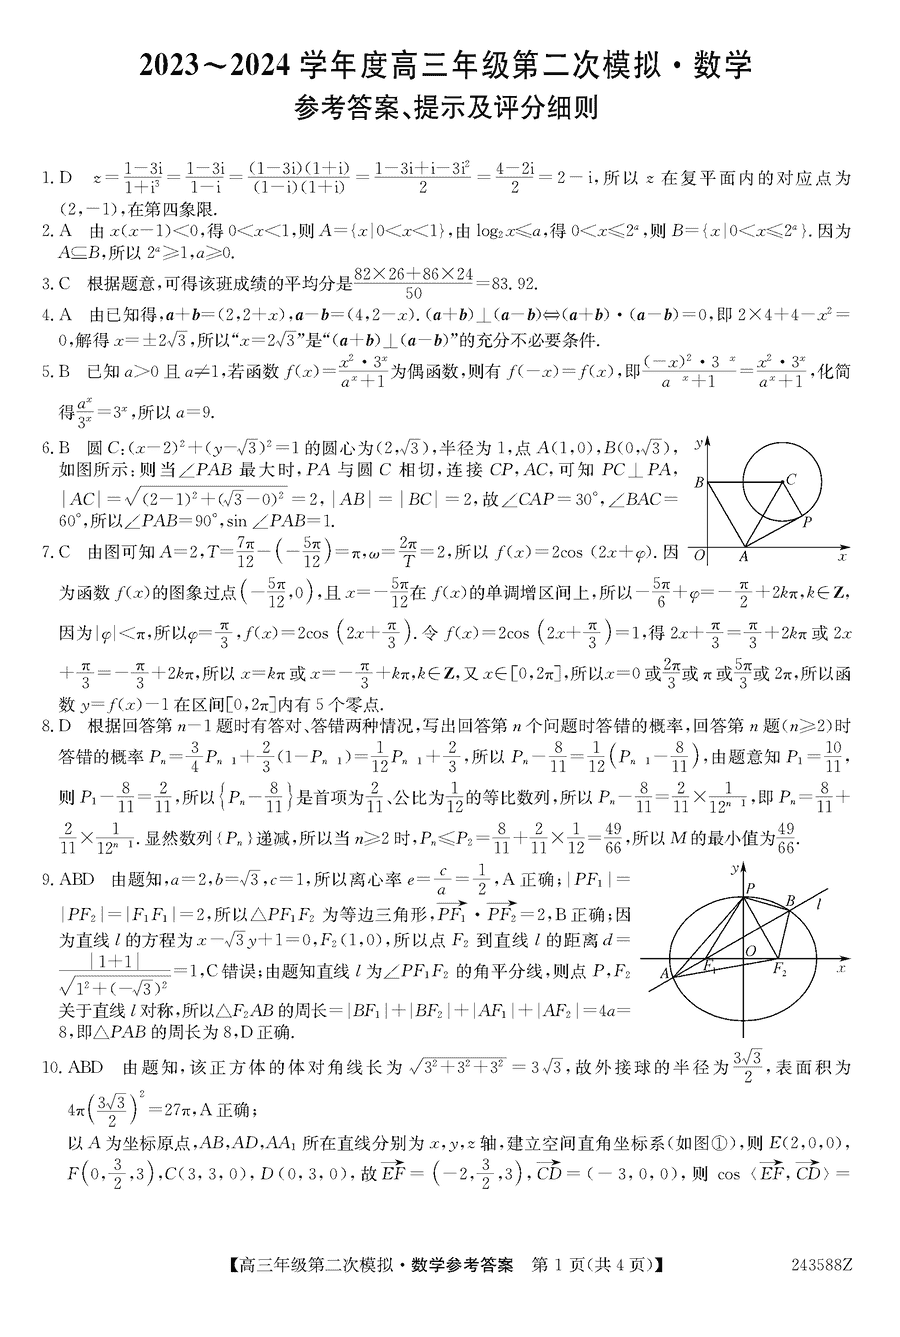 2023～2024 学年度高三年级第二次模拟·数学
参考答案、提示及评分细则
1. D　z=\frac{1-3i}{1+i³}=\frac{1-3i}{1-i}=\frac{(1-3i)(1+i)}{(1-i)(1+i)}=\frac{1-3i+i-3i²}{2}=\frac{4-2i}{2}=2-i,所以 z 在复平面内的对应点为
(2,-1),在第四象限.
2. A　由 x(x-1)<0,得 0<x<1,则 A={x|0<x<1},由 log₂x≤a,得 0<x≤2ᵃ,则 B={x|0<x≤2ᵃ}.因为
A⊆B,所以 2ᵃ≥1,a≥0.
3. C　根据题意,可得该班成绩的平均分是\frac{82×26+86×24}{50}=83.92.
4. A　由已知得,a+b=(2,2+x),a-b=(4,2-x).(a+b)⊥(a-b)⇔(a+b)·(a-b)=0,即 2×4+4-x²=
0,解得 x=±2√3,所以“x=2√3”是“(a+b)⊥(a-b)”的充分不必要条件.
5. B　已知 a>0 且 a≠1,若函数 f(x)=\frac{x²·3ˣ}{aˣ+1}为偶函数,则有 f(-x)=f(x),即\frac{(-x)²·3 ˣ}{a ˣ+1}=\frac{x²·3ˣ}{aˣ+1},化简
得\frac{aˣ}{3ˣ}=3ˣ,所以 a=9.
6. B　圆 C:(x-2)²+(y-√3)²=1 的圆心为(2,√3),半径为 1,点 A(1,0),B(0,√3),
如图所示:则当∠PAB 最大时,PA 与圆 C 相切,连接 CP,AC,可知 PC⊥PA,
|AC|=√((2-1)²+(√3-0)²)=2,|AB|=|BC|=2,故∠CAP=30°,∠BAC=
60°,所以∠PAB=90°,sin ∠PAB=1.
y
B
C
P
O
A
x
7. C　由图可知 A=2,T=\frac{7π}{12}-(-\frac{5π}{12})=π,ω=\frac{2π}{T}=2,所以 f(x)=2cos (2x+φ).因
为函数 f(x)的图象过点(-\frac{5π}{12},0),且 x=-\frac{5π}{12}在 f(x)的单调增区间上,所以-\frac{5π}{6}+φ=-\frac{π}{2}+2kπ,k∈Z,
因为|φ|<π,所以φ=\frac{π}{3},f(x)=2cos (2x+\frac{π}{3}).令 f(x)=2cos (2x+\frac{π}{3})=1,得 2x+\frac{π}{3}=\frac{π}{3}+2kπ 或 2x
+\frac{π}{3}=-\frac{π}{3}+2kπ,所以 x=kπ 或 x=-\frac{π}{3}+kπ,k∈Z,又 x∈[0,2π],所以x=0 或\frac{2π}{3}或 π 或\frac{5π}{3}或 2π,所以函
数 y=f(x)-1 在区间[0,2π]内有 5 个零点.
8. D　根据回答第 n-1 题时有答对、答错两种情况,写出回答第 n 个问题时答错的概率,回答第 n 题(n≥2)时
答错的概率 Pₙ=\frac{3}{4}Pₙ ₁+\frac{2}{3}(1-Pₙ ₁)=\frac{1}{12}Pₙ ₁+\frac{2}{3},所以 Pₙ-\frac{8}{11}=\frac{1}{12}(Pₙ ₁-\frac{8}{11}),由题意知 P₁=\frac{10}{11},
则 P₁-\frac{8}{11}=\frac{2}{11},所以{Pₙ-\frac{8}{11}}是首项为\frac{2}{11}、公比为\frac{1}{12}的等比数列,所以 Pₙ-\frac{8}{11}=\frac{2}{11}×\frac{1}{12ⁿ ¹},即 Pₙ=\frac{8}{11}+
\frac{2}{11}×\frac{1}{12ⁿ ¹}.显然数列{Pₙ}递减,所以当 n≥2 时,Pₙ≤P₂=\frac{8}{11}+\frac{2}{11}×\frac{1}{12}=\frac{49}{66},所以 M 的最小值为\frac{49}{66}.
9. ABD　由题知,a=2,b=√3,c=1,所以离心率 e=\frac{c}{a}=\frac{1}{2},A 正确;|PF₁|=
|PF₂|=|F₁F₁|=2,所以△PF₁F₂ 为等边三角形,\overrightarrow{PF₁}·\overrightarrow{PF₂}=2,B 正确;因
为直线 l 的方程为 x-√3y+1=0,F₂(1,0),所以点 F₂ 到直线 l 的距离 d=
\frac{|1+1|}{√(1²+(-√3)²)}=1,C 错误;由题知直线 l 为∠PF₁F₂ 的角平分线,则点 P,F₂
关于直线 l 对称,所以△F₂AB 的周长=|BF₁|+|BF₂|+|AF₁|+|AF₂|=4a=
8,即△PAB 的周长为 8,D 正确.
y
P
B
l
O
A
F₁
F₂
x
10. ABD　由题知,该正方体的体对角线长为 √(3²+3²+3²)=3√3,故外接球的半径为\frac{3√3}{2},表面积为
4π(\frac{3√3}{2})²=27π,A 正确;
以 A 为坐标原点,AB,AD,AA₁ 所在直线分别为 x,y,z 轴,建立空间直角坐标系(如图①),则 E(2,0,0),
F(0,\frac{3}{2},3),C(3,3,0),D(0,3,0),故 \overrightarrow{EF}=(-2,\frac{3}{2},3),\overrightarrow{CD}=(-3,0,0),则 cos 〈\overrightarrow{EF},\overrightarrow{CD}〉=
【高三年级第二次模拟·数学参考答案　第 1 页(共 4 页)】
243588Z